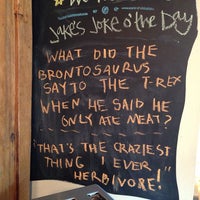 Jake's Joke o' the Day
WHAT DID THE
BRONTOSAURUS
SAY TO THE T-REX
WHEN HE SAID HE
ONLY ATE MEAT?
"THAT'S THE CRAZIEST
THING I EVER
HERBIVORE!"